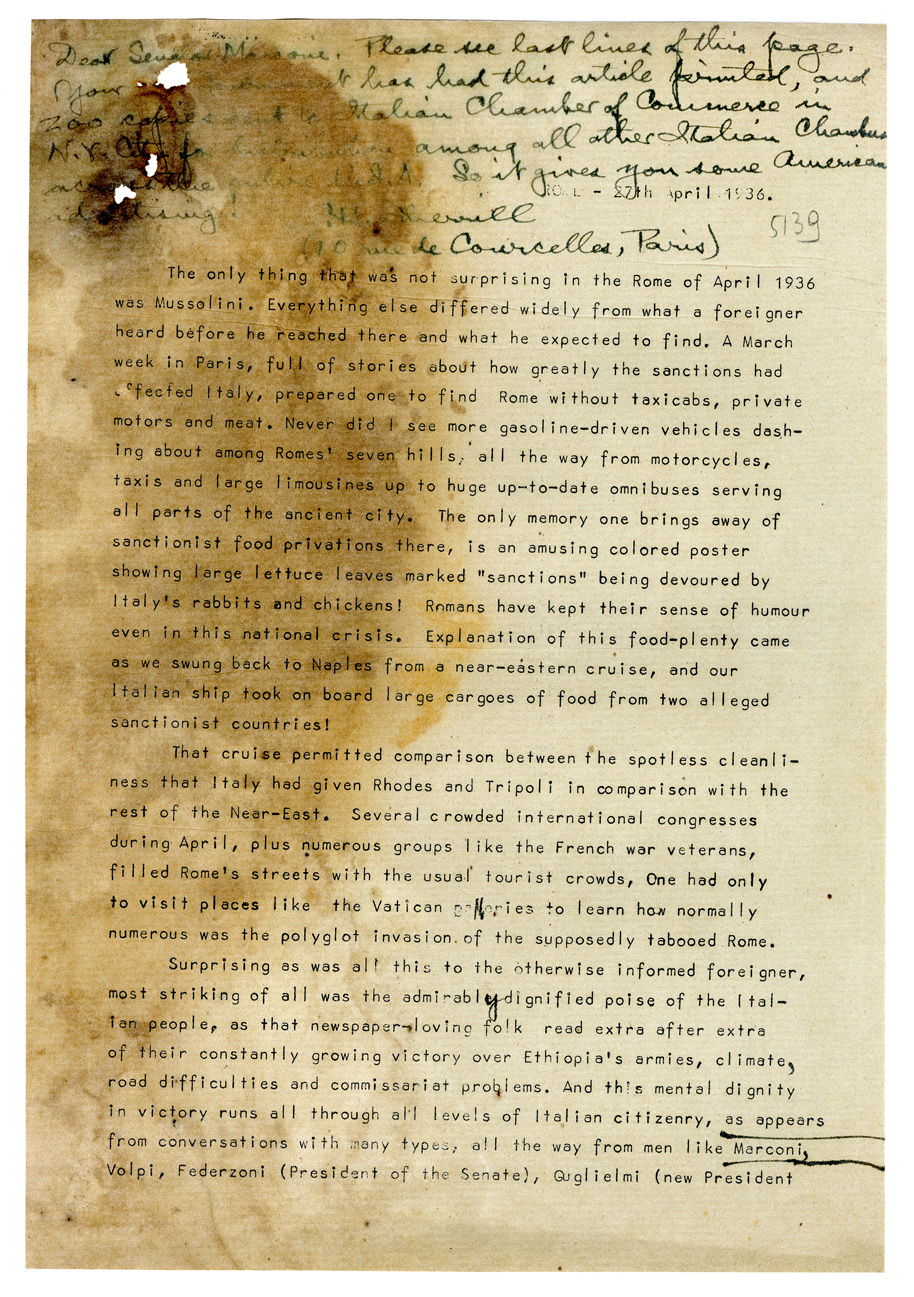 Dear Senator Marconi. Please see last lines of this page.
Your has had this article printed, and
200 copies Italian Chamber of Commerce in
N.Y. City for among all other Italian Chambers
across the U.S.A. So it gives you some American
advertising!
ROME - 27th April 1936.
5139
Merrill
(10 rue de Courcelles, Paris)
The only thing that was not surprising in the Rome of April 1936
was Mussolini. Everything else differed widely from what a foreigner
heard before he reached there and what he expected to find. A March
week in Paris, full of stories about how greatly the sanctions had
effected Italy, prepared one to find Rome without taxicabs, private
motors and meat. Never did I see more gasoline-driven vehicles dash-
ing about among Romes' seven hills, all the way from motorcycles,
taxis and large limousines up to huge up-to-date omnibuses serving
all parts of the ancient city. The only memory one brings away of
sanctionist food privations there, is an amusing colored poster
showing large lettuce leaves marked "sanctions" being devoured by
Italy's rabbits and chickens! Romans have kept their sense of humour
even in this national crisis. Explanation of this food-plenty came
as we swung back to Naples from a near-eastern cruise, and our
Italian ship took on board large cargoes of food from two alleged
sanctionist countries!
That cruise permitted comparison between the spotless cleanli-
ness that Italy had given Rhodes and Tripoli in comparison with the
rest of the Near-East. Several crowded international congresses
during April, plus numerous groups like the French war veterans,
filled Rome's streets with the usual tourist crowds, One had only
to visit places like the Vatican galleries to learn how normally
numerous was the polyglot invasion of the supposedly tabooed Rome.
Surprising as was all this to the otherwise informed foreigner,
most striking of all was the admirably dignified poise of the Ital-
ian people, as that newspaper-loving folk read extra after extra
of their constantly growing victory over Ethiopia's armies, climate,
road difficulties and commissariat problems. And this mental dignity
in victory runs all through all levels of Italian citizenry, as appears
from conversations with many types, all the way from men like Marconi,
Volpi, Federzoni (President of the Senate), Guglielmi (new President